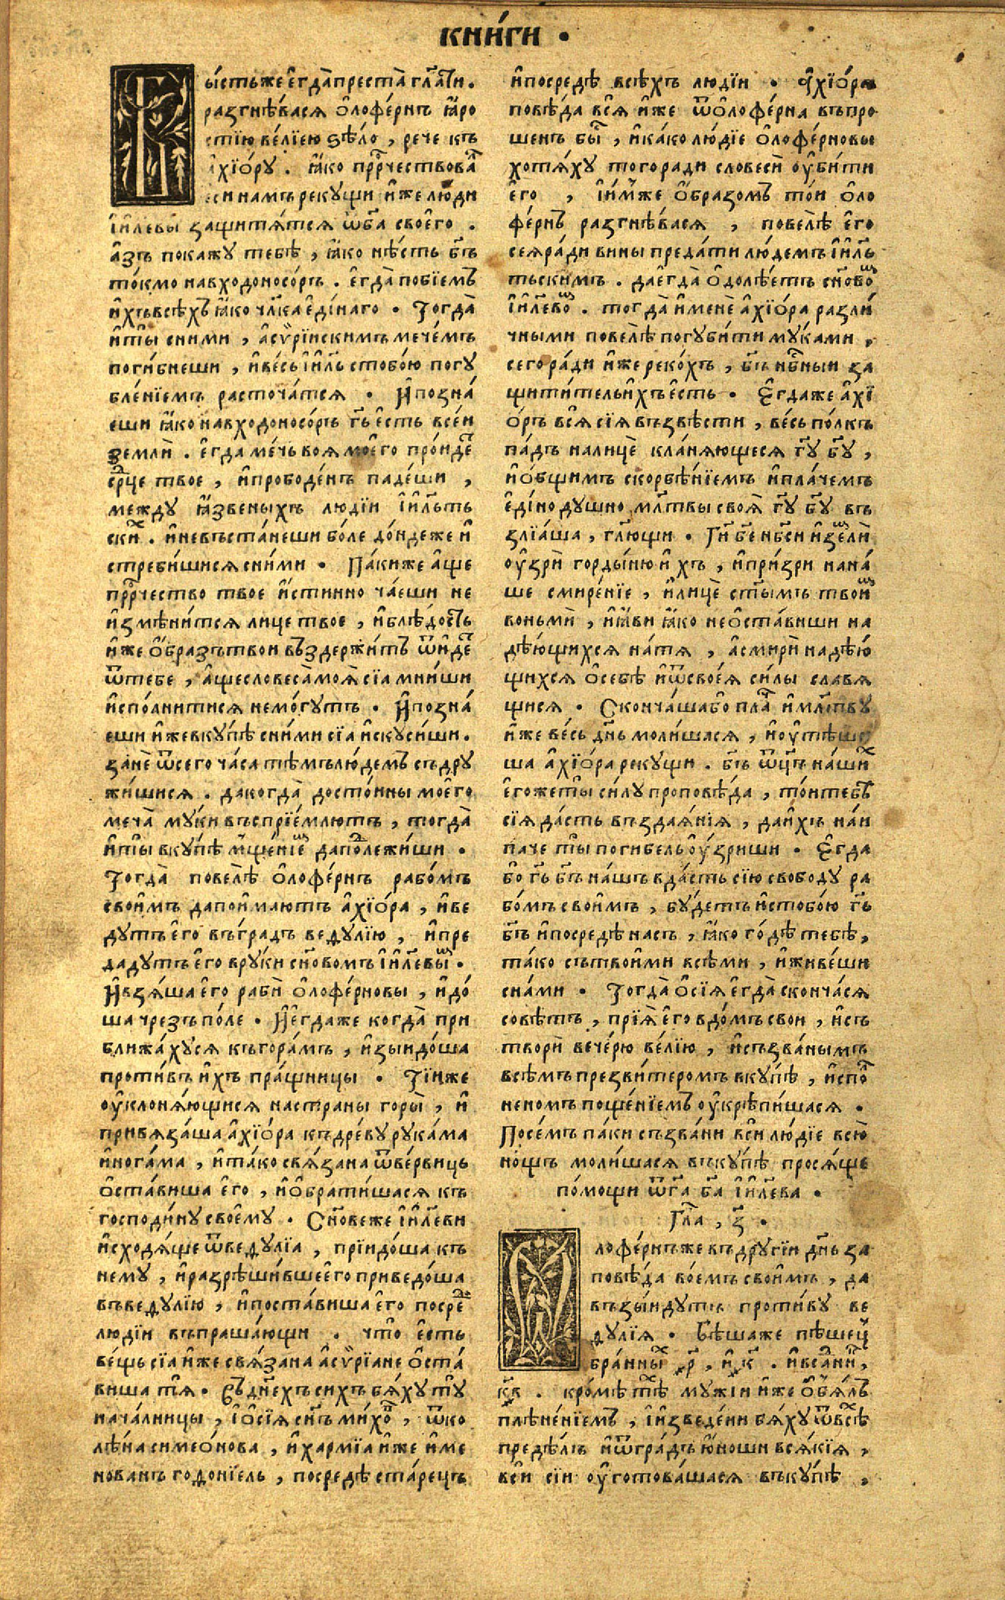 книги ·
Бы́сть же є҆гда̀ преста̀ гл҃ати .
разгнѣ́вася ѻ҆лофе́рнъ ꙗ҆́ро
стїю ве́лїею ѕѣло̀ , рече къ
а҆хїо́ру . ꙗ҆́ко прⷪ҇рчествова́лъ
єси намъ рекущи и҆́же люди
і҆и҃левы защитѧ́тсѧ ѿ б҃а своего̀ .
а҆́зъ покажу тебѣ̀ , ꙗ҆́ко нѣ́сть бг҃ъ
то́кмо навходоносо́ръ . є҆гда̀ побїемъ
и҆́хъ всѣхъ ꙗ҆́ко чл҃ка є҆ди́наго · Тогда̀
и҆ ты̀ с ними , а҆сѷрїискимъ мече́мъ
поги́бнеши , и҆ ве́сь і҆и҃ль с тобою погу
бле́нїемъ расточа́тсѧ · И҆ позна́
еши ꙗ҆́ко навходоносо́ръ гь҃ є́сть все́и
земли̏ . є҆гда ме́чь воѧ мо́его про́идеⷮ
ср҃це твое , и҆ прободе́нъ паде́ши ,
между ꙗ҆́звеныхъ людїи і҆и҃льть
скиⷯ . и҆ не въста́неши бо́ле до́ндеже и҆
стреби́шисѧ с ни́ми · Па́ки же а҆́ще
прⷪ҇рчество твое и҆́стинно ча́еши не
и҆змѣ́нитсѧ лице твое , и҆ блѣ́дость
и҆́же ѻ҆́бразъ твои въздержи́тъ ѿи́деⷮ
ѿ тебе , а҆́ще словеса̀ моѧ̀ сїа мниши
и҆спо́лнитисѧ не могутъ · И҆ позна́
еши и҆́же вкупѣ с ними сїа и҆скуси́ши .
занѐ ѿ сего ча́са тѣ́мъ людемъ съдру
жи́шисѧ . да когда̀ досто́ины моего
меча̀ муки въспрїе́млютъ , тогда̀
и҆ ты̀ вкупѣ мщенїеⷨ да поⷣлежи́ши ·
Тогда̀ повелѣ̀ ѻ҆лофе́рнъ рабо́мъ
свои́мъ да пои́маютъ а҆хїо́ра , и҆ ве
дутъ є҆го̀ въ гра́дъ ведулїю , и҆ пре
дадутъ є҆го в руки сн҃овомъ і҆и҃левыⷨ ·
И҆ взѧ́ша є҆го раби ѻ҆лофе́рновы , и҆ до́
ша чрезъ по́ле · И҆ є҆гда же когда̀ при
ближа́хусѧ къ гора́мъ , и҆зыидо́ша
проти́въ и҆́хъ пра́щницы · Ті́и же
оу҆клонѧ́ющисѧ на страны горы̀ , и҆
привѧза́ша а҆хїо́ра къ древу рука́ма
и҆ нога́ма , и҆ та́ко свѧ́зана ѿ ве́рвиць
ѻ҆ста́виша є҆го , и҆ ѻ҆брати́шасѧ къ
господи́ну своему · Сн҃ове же і҆и҃леви
и҆сходѧ́ще ѿ ведулїа , прїидо́ша къ
нему , и҆ разрѣши́вше є҆го приведо́ша
въ ведулїю , и҆ поста́виша є҆го посреⷣ
людїи въпраша́ющи . что̀ є́сть
ве́щь сїа и҆́же свѧ́зана а҆сѷрїане ѻ҆ста́
виша тѧ̀ · Въ дн҃ехъ сихъ бѧ́ху ту̀
нача́лницы , і҆ѻ҆сїѧ сн҃ъ михоⷡ , ѿ ко
лѣ́на симео́нова , и҆ харми́а и҆́же и҆ме
нованъ годонїель , посредѣ ста́рецъ
и҆ посредѣ всѣ́хъ людїи · А҆хїо́ръ
повѣ́да всѧ̀ и҆́же ѿ ѻ҆лофе́рна въпро
шенъ бы́лъ , и҆ ка́ко лю́дїе ѻ҆лофе́рновы
хотѧ́ху того ради словесѝ оу҆би́ти
є҆го , і҆и҆́мже ѻ҆́бразомъ тои ѻ҆ло
фе́рнъ разгнѣ́васѧ , повелѣ є҆го
сеѧ ра́ди вины преда́ти лю́демъ і҆и҃ль
тьскимъ . да є҆гда̀ ѻ҆долѣ́етъ сн҃овоⷨ
і҆и҃левоⷨ . тогда̀ и҆ менѐ а҆хїо́ра разли́
чными повелѣ погуби́ти му́ками ,
сего ра́ди и҆́же реко́хъ , бг҃ъ нб҃ныи за
щити́тель и҆́хъ є́сть · Є҆гда же а҆хї
о́ръ всѧ̀ сїѧ възвѣ́сти , ве́сь по́лкъ
па́дъ на лицѐ кла́нѧющесѧ гу҃ бу҃ ,
и҆ о́бщимъ скорбѣ́нїемъ и҆ пла́чемъ
є҆ди́нодушно мл҃твы своѧ̀ гу҃ бу҃ въ
злїа́ша , гл҃ющи · Ги҃ бе҃ нб҃си и҆ земли̏
оу҆зри̏ горды́ню и҆́хъ , и҆ при́зри на на́
ше смире́нїе , и҆ лицѐ ст҃ы́мъ твоиⷨ
воньми̏ , и҆ ꙗ҆ви ꙗ҆́ко не ѻ҆ста́виши на
дѣ́ющихсѧ на тѧ , а҆ смири̏ надѣ́ю
щихсѧ ѻ҆ себѣ и҆ ѿ своеѧ си́лы сла́вѧ
щисѧ · Сконча́ша бо пла́чь и҆ мл҃тву
и҆́же ве́сь дн҃ь моли́шасѧ , и҆ оу҆тѣши
ша а҆хїо́ра рекущи . бг҃ъ ѿц҃ъ на́шиⷯ
є҆го́же ты си́лу проповѣ́да , то́и тебѣ̀
сїѧ да́сть въздаѧ́нїѧ , да и҆́хъ наи
па́че ты̀ поги́бель оу҆́зриши · Є҆гда
бо гь҃ бг҃ъ на́шъ вда́сть сїю свободу ра
бо́мъ свои́мъ , бу́детъ и҆ с тобою гь҃
бг҃ъ и҆ посредѣ́ насъ , ꙗ҆́ко го́дѣ тебѣ̀ ,
та́ко съ твои́ми всѣ́ми , и҆ живе́ши
с на́ми · Тогда̀ ѻ҆сїѧ є҆гда̀ сконча́сѧ
совѣ́тъ , прїѧ̀ є҆го в до́мъ свои , и҆ съ
твори̏ вече́рю ве́лїю , и҆ съзва́нымъ
всѣ́мъ презви́теромъ вкупѣ̀ , и҆споⷧ
неномъ поще́нїемъ оу҆крѣпи́шасѧ .
Посе́мъ па́ки съзва́ни вси̏ лю́дїе всю̀
но́щь моли́шасѧ въ купѣ̀ просѧ́ще
по́мощи ѿ га҃ ба҃ і҆и҃лева .
Гла , з҃ .
Ѻ҆лофе́рнъ же въ другїи дн҃ь за
повѣ́да во́емъ свои́мъ , да
възы́идутъ проти́ву ве
дулїѧ · Бѣ́ша же пѣ́шецъ
бра́нныⷯ р҃ , и҆ к҃ . и҆ вса́дниⷦ ,
кв҃ . кро́мѣ тѣⷯ мужїи и҆́же ѻ҆б̾ѧ́лъ
плѣне́нїемъ , и҆ и҆зведе́ни бѧ́ху ѿ всѣⷯ
предѣ́лъ и҆ ѿ гра́дъ ю҆́ноши всѧ́кїѧ ,
вси̏ сїи оу҆гото́вашасѧ въ купѣ̀ ,